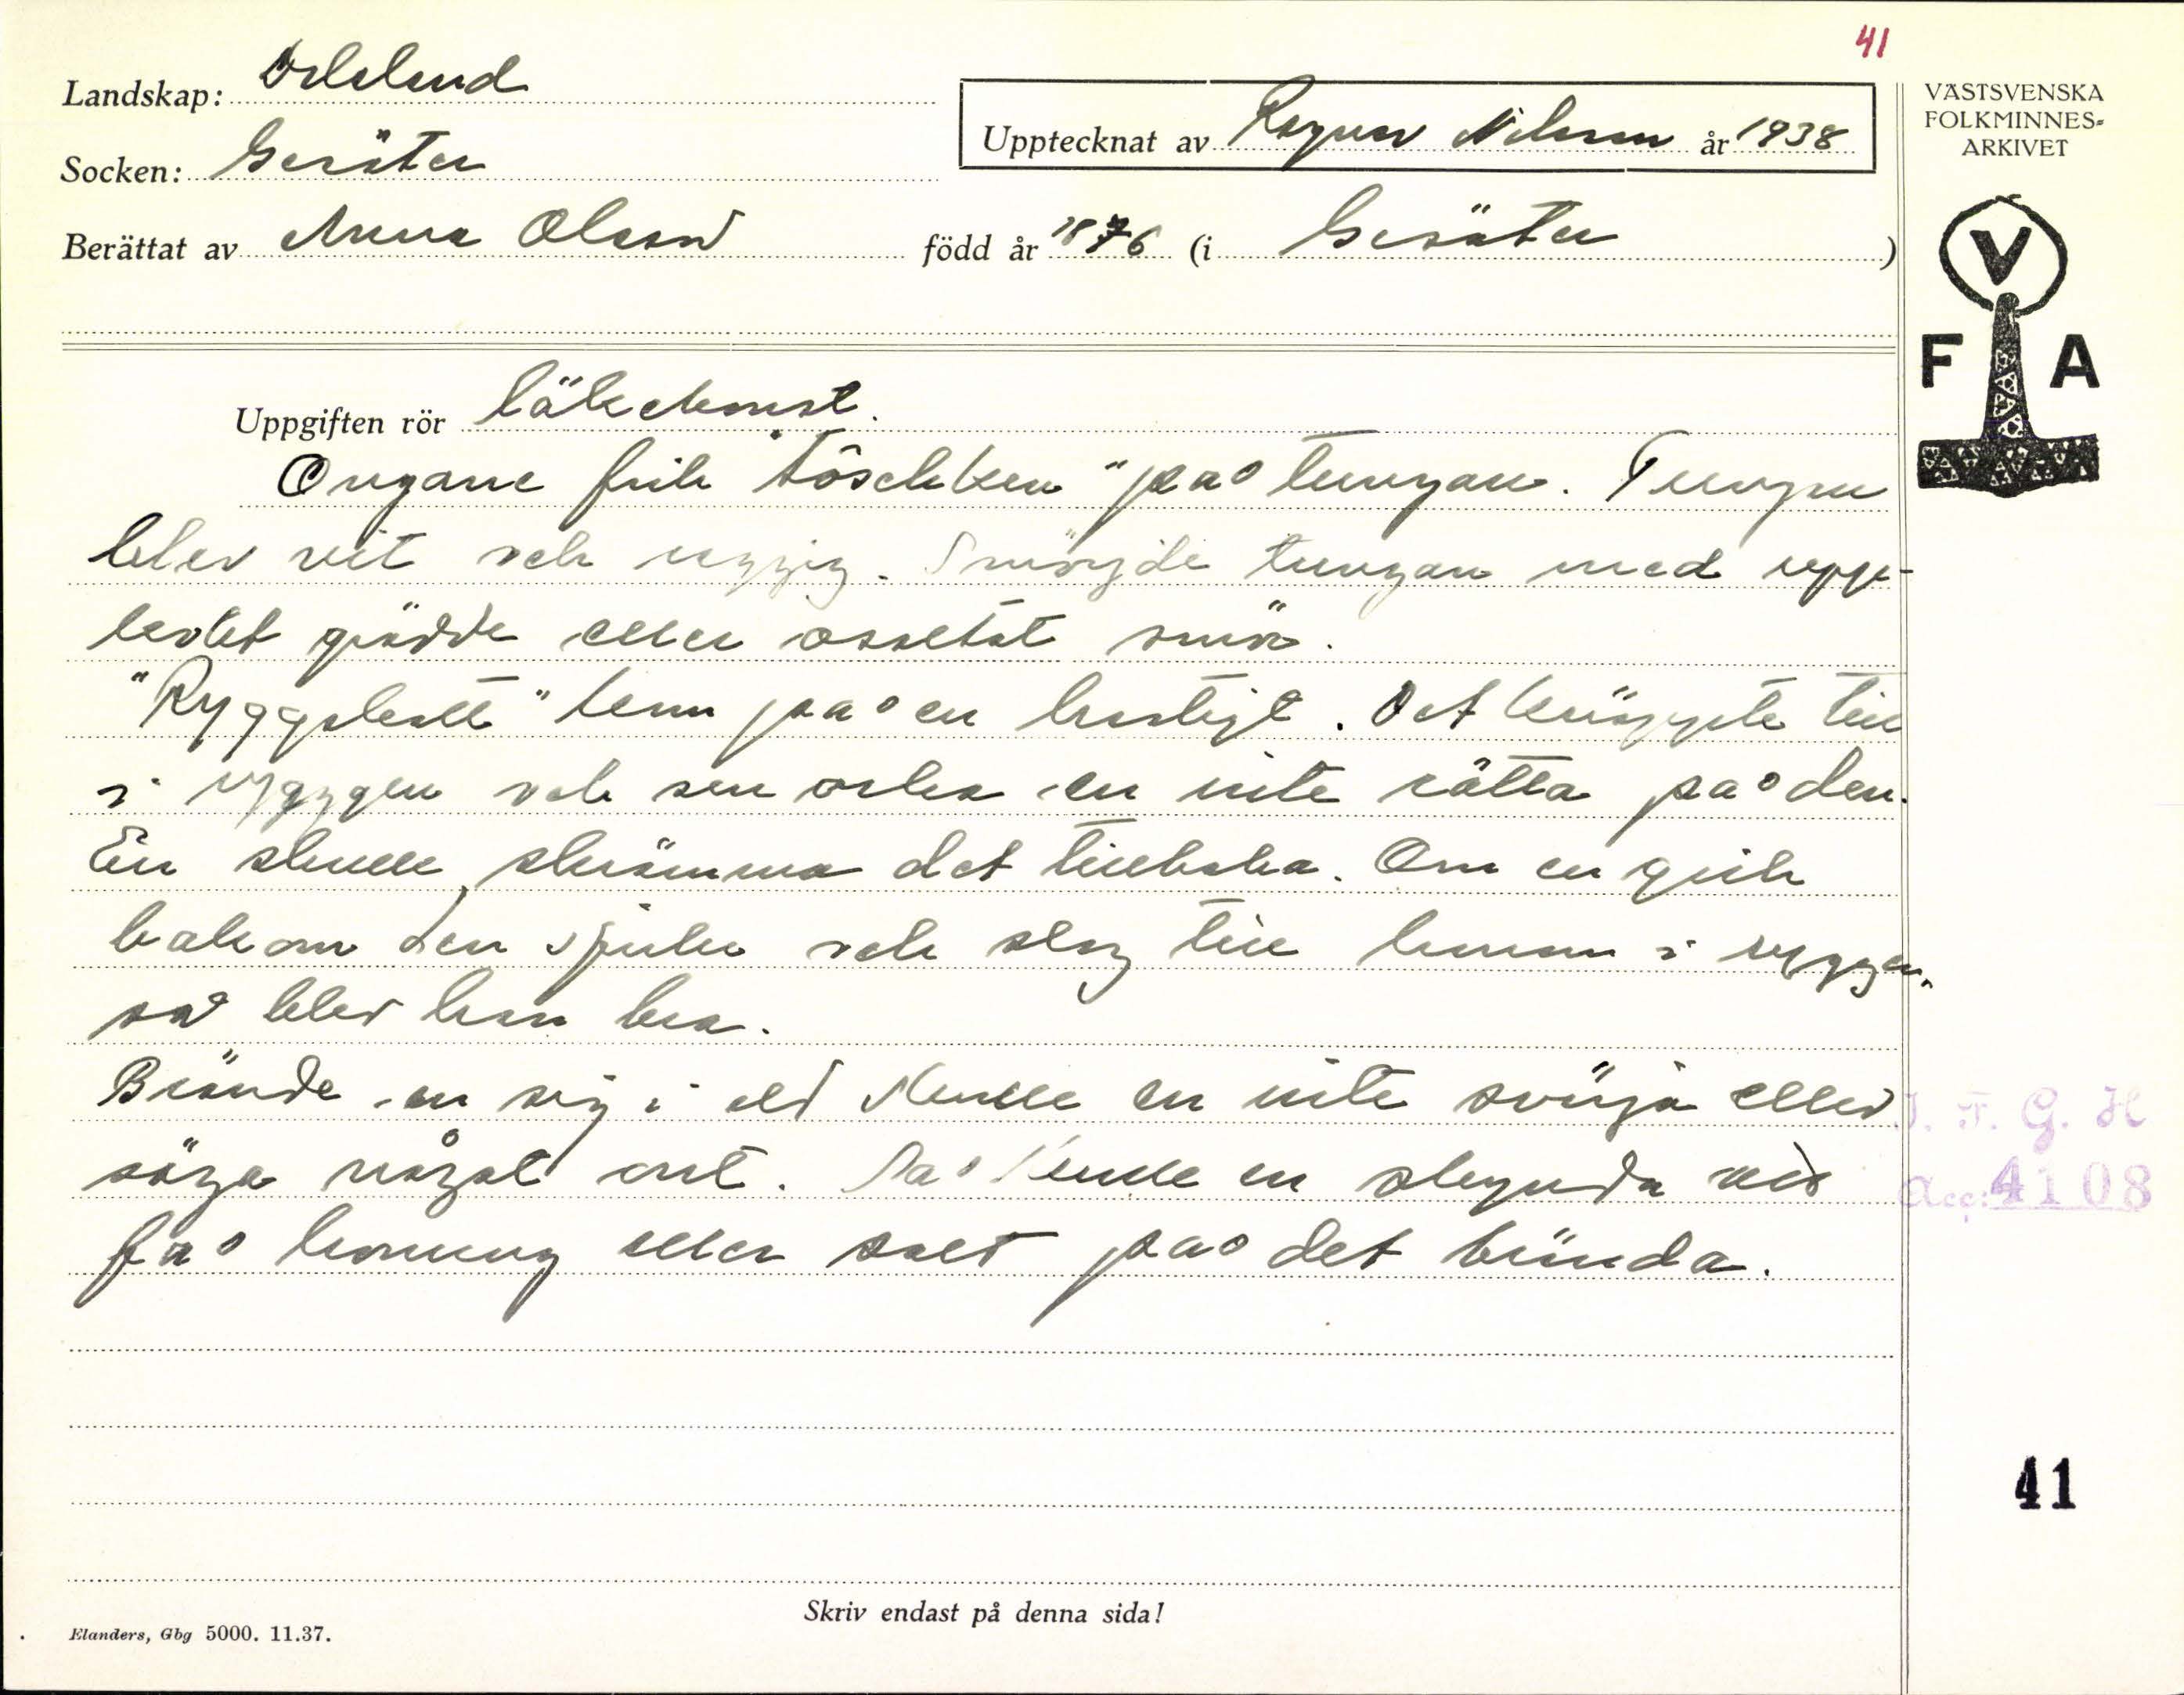 41
Landskap: Dalsland
Upptecknat av Ragnar Nilsson år 1938
VÄSTSVENSKA
FOLKMINNES-
ARKIVET
Socken: Gesäter
Berättat av Anna Olsson född år 1876 (i Gesäter)
V
F A
Uppgiften rör läkekonst.
Ongane fick "töschken" på tungan. Tungen
blev vit och ruggig. Smörjde tungan med upp-
kavlet grädde eller osaltat smör.
"Ryggskott" kom på en hastigt. Det knäppte till
i ryggen och sen orka en inte rätta på den.
En skulle skrämma det tillbaka. Om en gick
bakom den sjuke och slog till honom i ryggen,
så blev han bra.
Brände en sig i eld skulle en inte svärja eller
säga något ont. Då skulle en skynda
få honung eller salt på det brända.
J. F. G. H
Acc: 4108
41
Skriv endast på denna sida!
Elanders, Gbg 5000. 11.37.